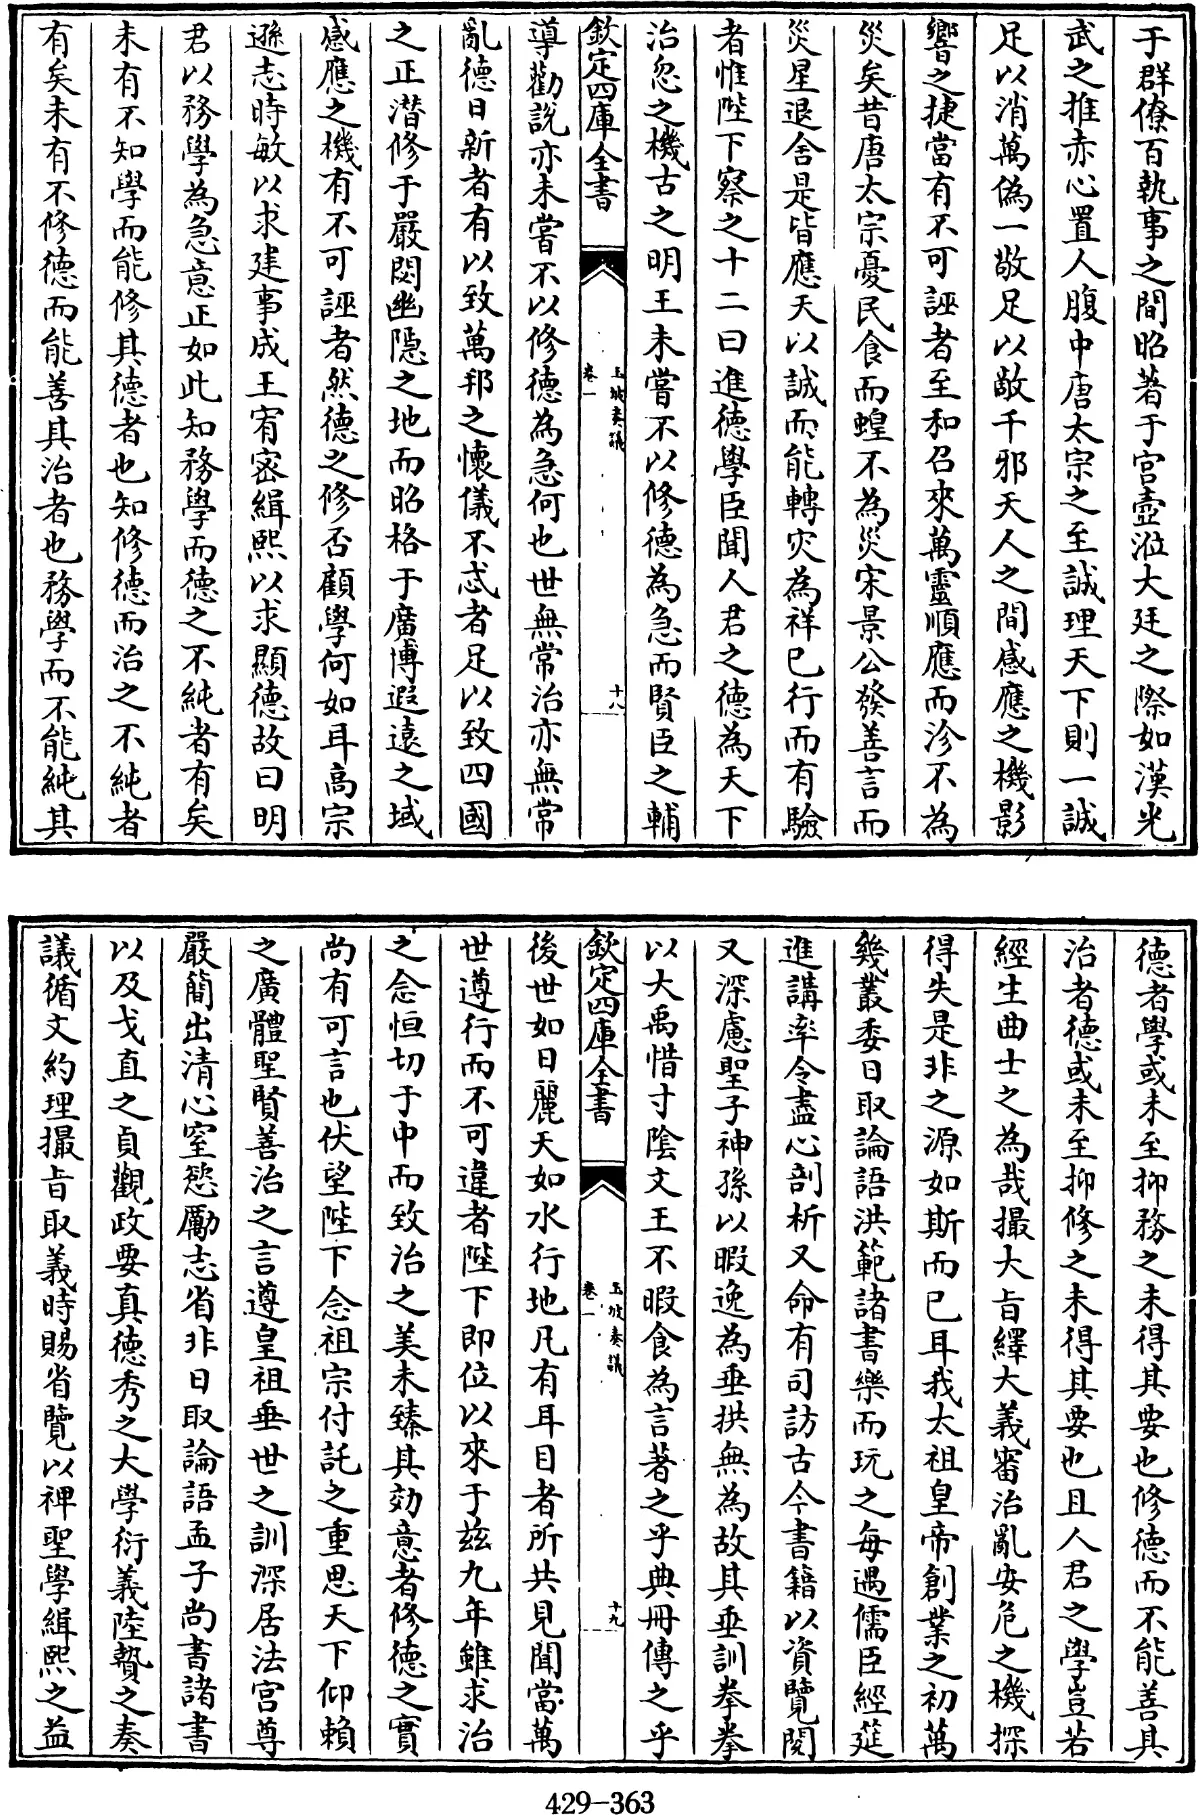 于群僚百執事之間昭著于宫壼涖大廷之際如漢光
武之推赤心置人腹中唐太宗之至誠理天下則一誠
足以消萬偽一敬足以敵千邪天人之間感應之機影
響之捷當有不可誣者至和召來萬靈順應而沴不為
災矣昔唐太宗憂民食而蝗不為災宋景公發善言而
災星退舍是皆應天以誠而能轉灾為祥已行而有驗
者惟陛下察之十二曰進德學臣聞人君之德為天下
治忽之機古之明王未嘗不以修德為急而賢臣之輔
欽定四庫全書
玉坡奏議
卷一
十八
導勸説亦未嘗不以修德為急何也世無常治亦無常
亂德日新者有以致萬邦之懷儀不忒者足以致四國
之正潜修于嚴閟幽隱之地而昭格于廣博遐遠之域
感應之機有不可誣者然德之修否顧學何如耳高宗
遜志時敏以求建事成王宥密緝熙以求顯德故曰明
君以務學為急意正如此知務學而德之不純者有矣
未有不知學而能修其德者也知修德而治之不純者
有矣未有不修德而能善其治者也務學而不能純其
德者學或未至抑務之未得其要也修德而不能善其
治者德或未至抑修之未得其要也且人君之學豈若
經生曲士之為哉撮大旨繹大義審治亂安危之機探
得失是非之源如斯而已耳我太祖皇帝創業之初萬
幾叢委日取論語洪範諸書樂而玩之每遇儒臣經筵
進講率令盡心剖析又命有司訪古今書籍以資覽閲
又深慮聖子神孫以暇逸為垂拱無為故其垂訓拳拳
以大禹惜寸陰文王不暇食為言著之乎典冊傳之乎
欽定四庫全書
玉坡奏議
卷一
十九
後世如日麗天如水行地凡有耳目者所共見聞當萬
世遵行而不可違者陛下即位以來于兹九年雖求治
之念恒切于中而致治之美未臻其効意者修德之實
尚有可言也伏望陛下念祖宗付託之重思天下仰賴
之廣體聖賢善治之言遵皇祖垂世之訓深居法宫尊
嚴簡出清心窒慾勵志省非日取論語孟子尚書諸書
以及戈直之貞觀政要真德秀之大學衍義陸贄之奏
議循文約理撮旨取義時賜省覽以裨聖學緝熙之益
429-363